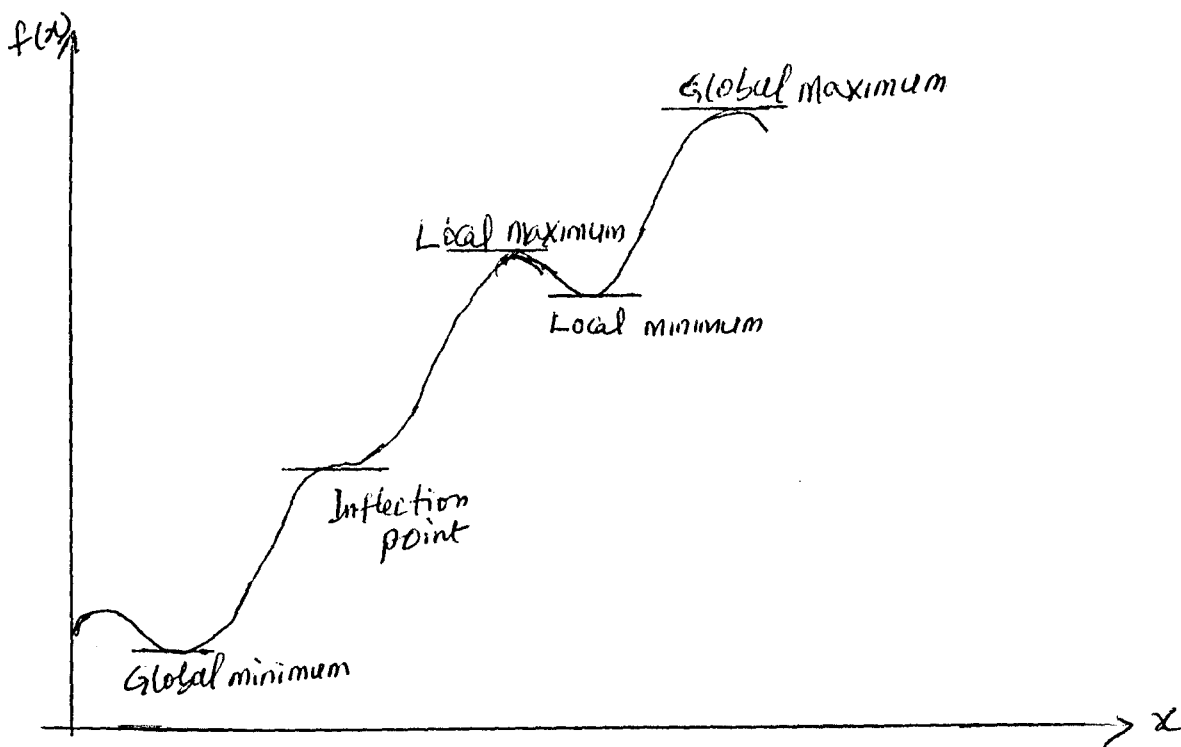 f(x)
Global maximum
Local maximum
Local minimum
Inflection
point
Global minimum
x